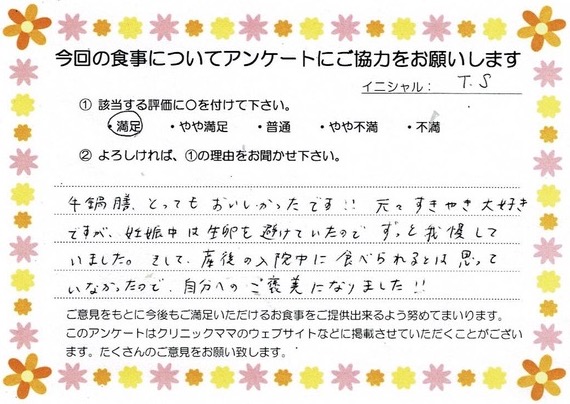 今回の食事についてアンケートにご協力をお願いします
イニシャル： T.S
① 該当する評価に〇を付けて下さい。
・満足 ・やや満足 ・普通 ・やや不満 ・不満
② よろしければ、①の理由をお聞かせ下さい。
牛鍋膳、とってもおいしかったです!! 元々すきやき大好き
ですが、妊娠中は生卵を避けていたのでずっと我慢して
いました。まして、産後の入院中に食べられるとは思って
いなかったので、自分へのご褒美になりました!!
ご意見をもとに今後もご満足いただけるお食事をご提供出来るよう努めてまいります。
このアンケートはクリニックママのウェブサイトなどに掲載させていただくことがござい
ます。たくさんのご意見をお願い致します。